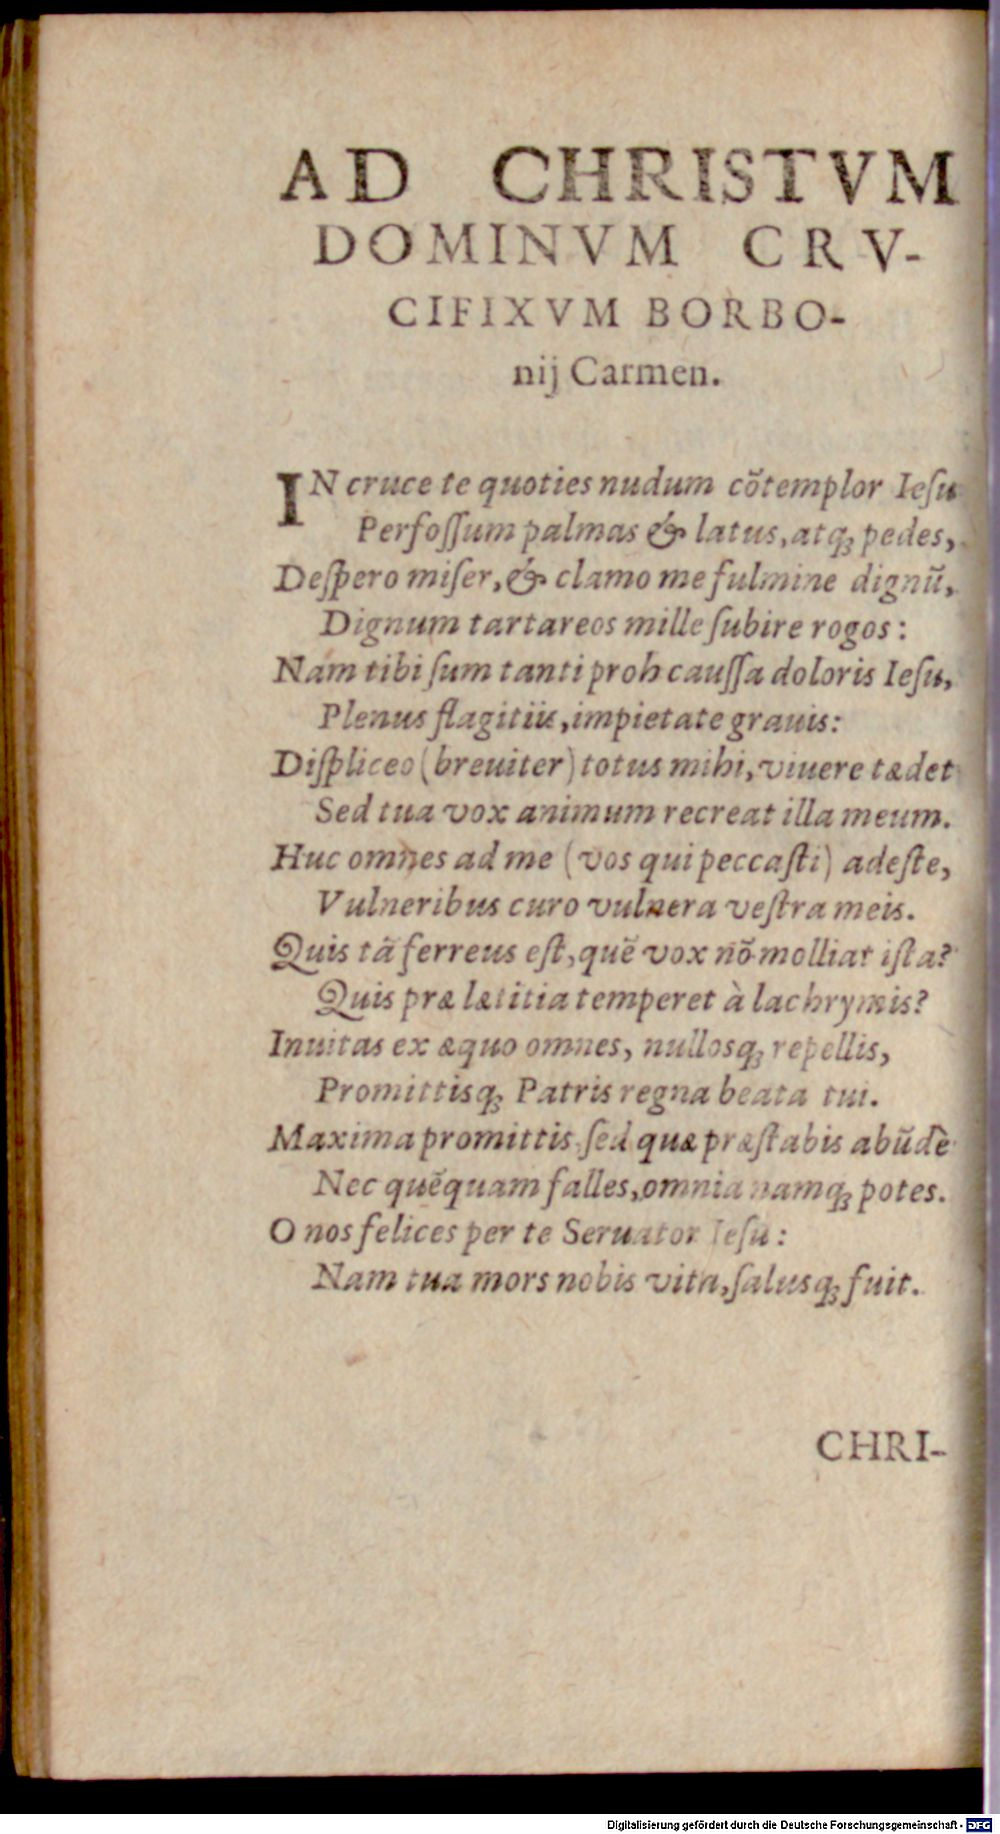 AD CHRISTVM
DOMINVM CRV-
CIFIXVM BORBO-
nij Carmen.
IN cruce te quoties nudum cõtemplor Ieſu
Perfoſſum palmas & latus, atqꝫ pedes,
Deſpero miſer, & clamo me fulmine dignũ,
Dignum tartareos mille ſubire rogos:
Nam tibi ſum tanti proh cauſſa doloris Ieſu,
Plenus flagitiis, impietate grauis:
Diſpliceo (breuiter) totus mihi, viuere tædet
Sed tua vox animum recreat illa meum.
Huc omnes ad me (vos qui peccaſti) adeſte,
Vulneribus curo vulnera veſtra meis.
Quis tã ferreus eſt, quẽ vox nõ molliat iſta?
Quis præ lætitia temperet à lachrymis?
Inuitas ex æquo omnes, nullosqꝫ repellis,
Promittisqꝫ Patris regna beata tui.
Maxima promittis, ſed quæ præſtabis abũdè
Nec quẽquam falles, omnia namqꝫ potes.
O nos felices per te Seruator Ieſu:
Nam tua mors nobis vita, ſalusqꝫ fuit.
CHRI-
Digitalisierung gefördert durch die Deutsche Forschungsgemeinschaft - DFG